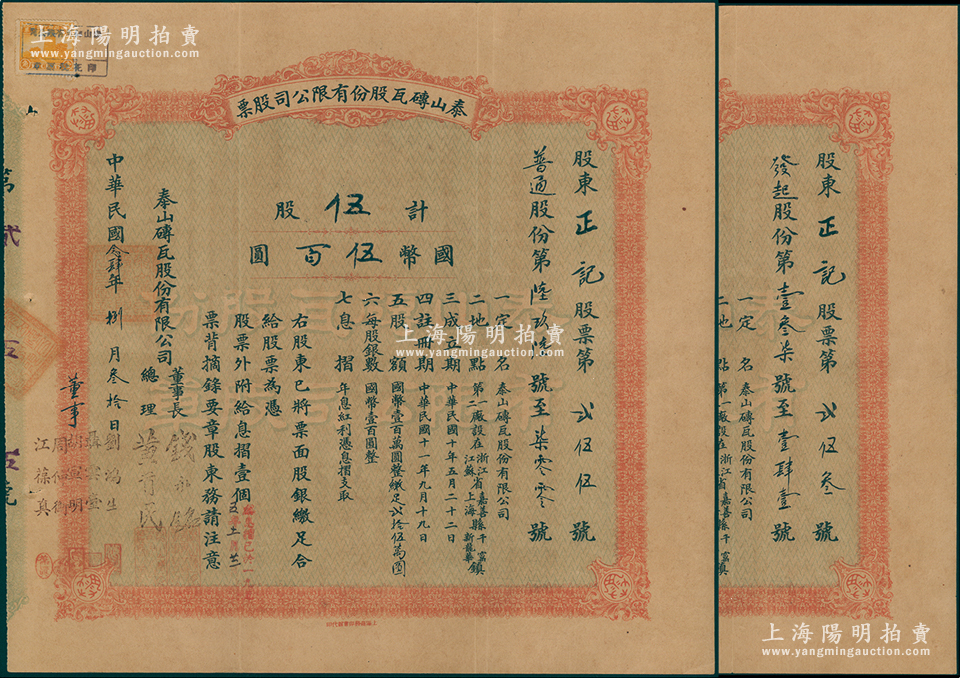 上海陽明拍賣
www.yangmingauction.com
泰山磚瓦股份有限公司股票
股東正記股票第弍伍伍號
普通股份第陸玖陸號至柒零零號
計伍股
國幣伍百圓
一定名 泰山磚瓦股份有限公司
二地點 第一廠設在浙江省嘉善縣干窰鎮 第二廠設在江蘇省上海新龍華
三成立期 中華民國十年五月二十二日
四註冊期 中華民國十一年九月十九日
五股額 國幣壹百萬圓整繳足弍拾伍萬圓
六每股銀數 國幣壹百圓整
七息摺 年息紅利憑息摺支取
右股東已將票面股銀繳足合
給股票為憑
股票外附給息摺壹個
票背摘錄要章股東務請注意
泰山磚瓦股份有限公司
董事長 錢永銘
總理 黃首民
董事
劉鴻生
江葆真
中華民國念肆年捌月叁拾日
上海陽明拍賣
www.yangmingauction.com
上海陽明拍賣
www.yangmingauction.com
股東正記股票第弍伍叁號
發起股份第壹叁柒號至壹肆壹號
一定名 泰山磚瓦股份有限公司
二地點 第一廠設在浙江省嘉善縣干窰鎮
上海陽明拍賣
www.yangmingauction.com